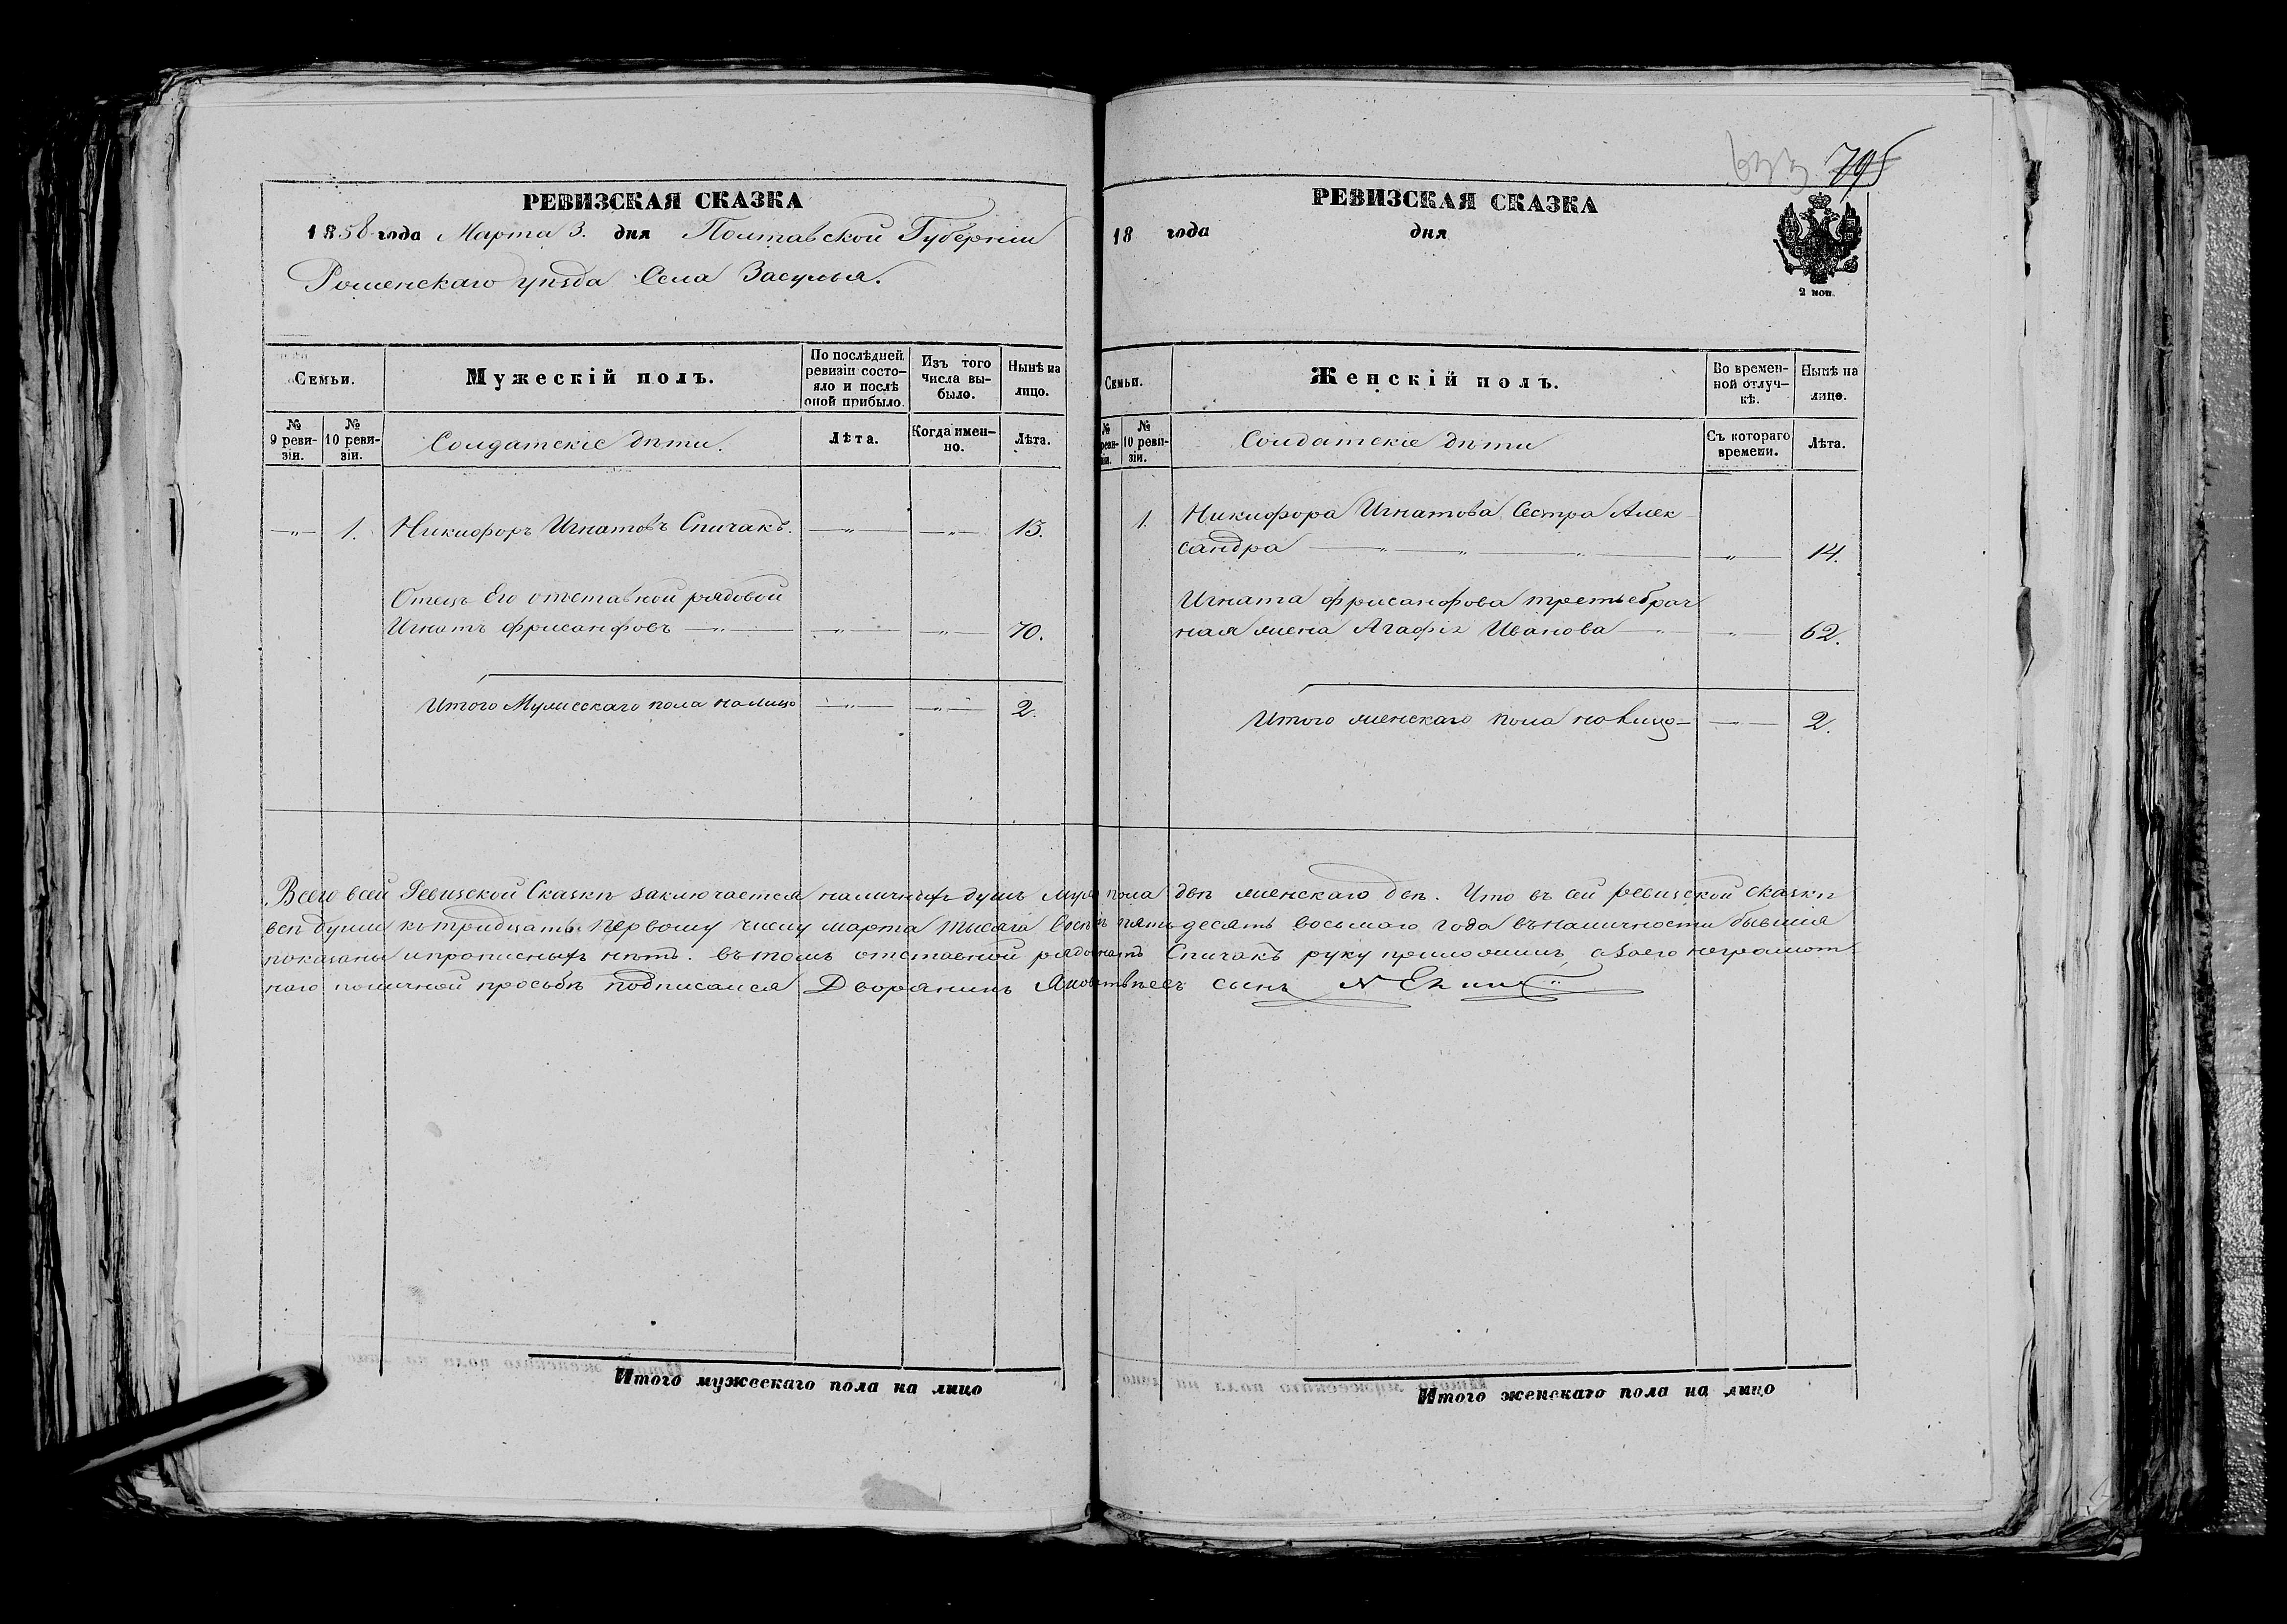 633 795
РЕВИЗСКАЯ СКАЗКА
1858 года Марта 3. дня Полтавской Губерніи
Роменскаго уѣзда Села Засулья.
Семьи.
Мужескій полъ.
По послѣдней ревизіи состояло и послѣ оной прибыло.
Изъ того числа выбыло.
Нынѣ на лицо.
№ 9 ревизіи.
№ 10 ревизіи.
Солдатскіе дѣти.
Лѣта.
Когда именно.
Лѣта.
1. Никифоръ Игнатовъ Спичакъ. 13.
Отецъ Его отставной рядовой
Игнатъ Фрисанфовъ 70.
Итого Мужескаго пола на лицо 2.
РЕВИЗСКАЯ СКАЗКА
18 года дня
2 коп.
Семьи.
Женскій полъ.
Во временной отлучкѣ.
Нынѣ на лицо.
№ реви- зіи.
№ 10 ревизіи.
Солдатскіе дѣти
Съ котораго времени.
Лѣта.
1. Никифора Игнатова Сестра Алек
сандра 14.
Игната Фрисанфова третьебрач
ная жена Агафія Иванова 62.
Итого женскаго пола на лицо 2.
Всего всей Ревизской Сказкѣ заключается наличныхъ душъ муж пола двѣ женскаго двѣ. Что въ сей ревизской сказкѣ
всѣ души къ тридцать первому числу марта тысяча пятьдесять восьмаго года въ наличности бывшія
показаны и прописныхъ нѣтъ. въ томъ отставной рядовой Спичакъ руку приложилъ, а за его неграмот
наго по личной просьбѣ подписался Дворянинъ сынъ
Итого мужескаго пола на лицо
Итого женскаго пола на лицо